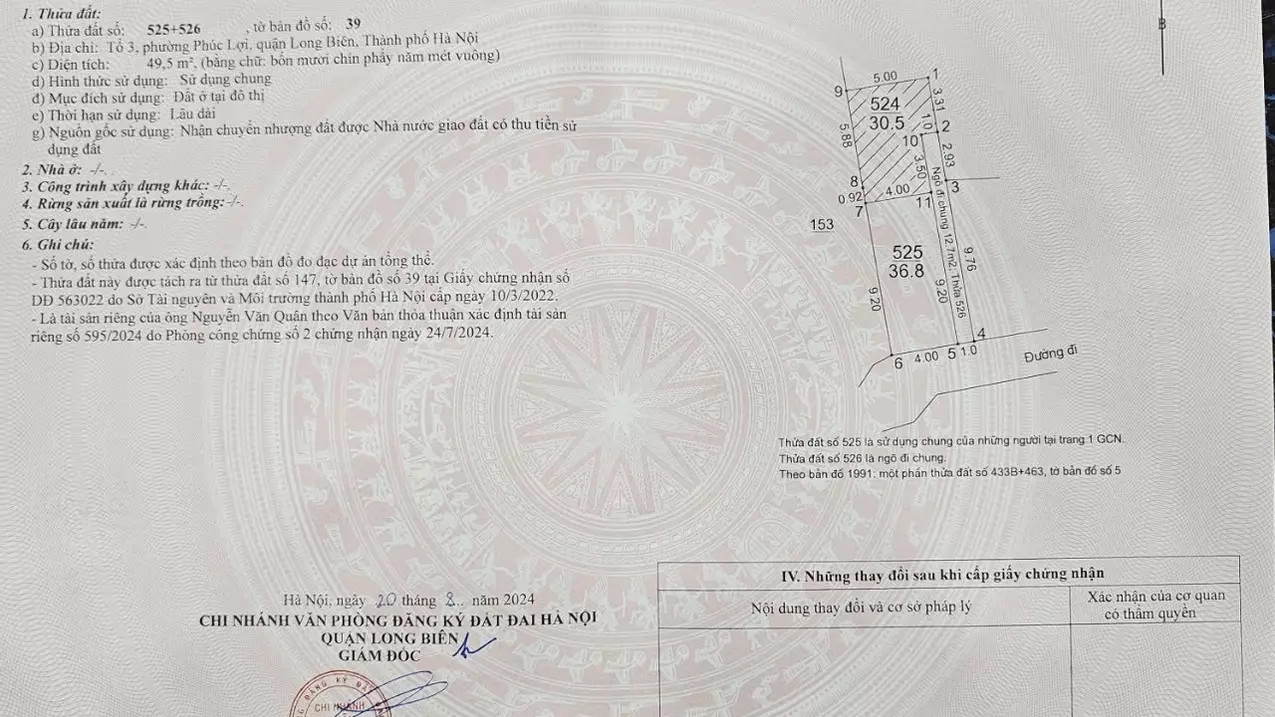 1. Thửa đất:
a) Thửa đất số: 525+526 , tờ bản đồ số: 39
b) Địa chỉ: Tổ 3, phường Phúc Lợi, quận Long Biên, Thành phố Hà Nội
c) Diện tích: 49,5 m², (bằng chữ: bốn mươi chín phẩy năm mét vuông)
d) Hình thức sử dụng: Sử dụng chung
đ) Mục đích sử dụng: Đất ở tại đô thị
e) Thời hạn sử dụng: Lâu dài
g) Nguồn gốc sử dụng: Nhận chuyển nhượng đất được Nhà nước giao đất có thu tiền sử
dụng đất
2. Nhà ở: -/-.
3. Công trình xây dựng khác: -/-.
4. Rừng sản xuất là rừng trồng: -/-.
5. Cây lâu năm: -/-.
6. Ghi chú:
- Số tờ, số thửa được xác định theo bản đồ đo đạc dự án tổng thể.
- Thửa đất này được tách ra từ thửa đất số 147, tờ bản đồ số 39 tại Giấy chứng nhận số
DĐ 563022 do Sở Tài nguyên và Môi trường thành phố Hà Nội cấp ngày 10/3/2022.
- Là tài sản riêng của ông Nguyễn Văn Quân theo Văn bản thỏa thuận xác định tài sản
riêng số 595/2024 do Phòng công chứng số 2 chứng nhận ngày 24/7/2024.
Hà Nội, ngày 20 tháng 8.. năm 2024
CHI NHÁNH VĂN PHÒNG ĐĂNG KÝ ĐẤT ĐAI HÀ NỘI
QUẬN LONG BIÊN
GIÁM ĐỐC
ĐĂNG KÝ ĐẤT
CHI NHÁNH
B
9
5.00
1
524
30.5
3.31
1.0
2
10
5.88
3.50
2.93
8
4.00
3
0.92
7
11
153
Ngõ đi chung 12.7m2, Thửa 526
525
36.8
9.76
9.20
9.20
4
6
4.00
5
1.0
Đường đi
Thửa đất số 525 là sử dụng chung của những người tại trang 1 GCN.
Thửa đất số 526 là ngõ đi chung.
Theo bản đồ 1991: một phần thửa đất số 433B+463, tờ bản đồ số 5
IV. Những thay đổi sau khi cấp giấy chứng nhận
Nội dung thay đổi và cơ sở pháp lý
Xác nhận của cơ quan
có thẩm quyền